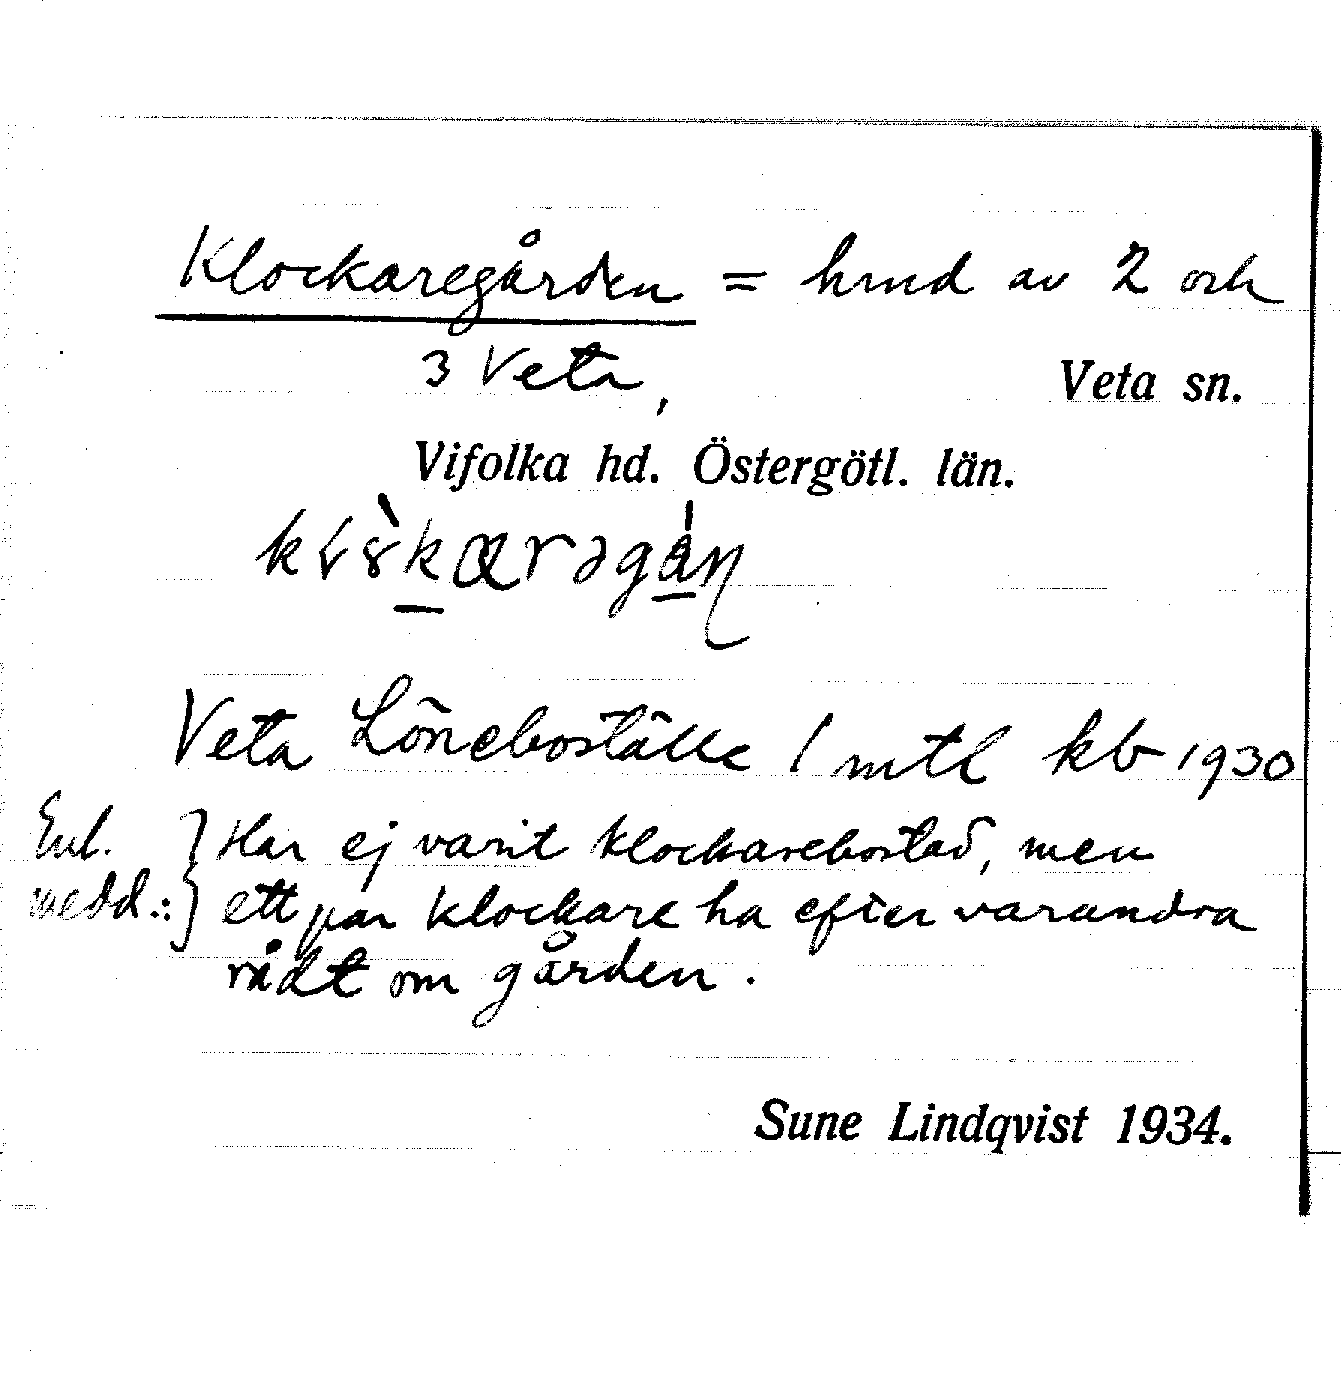 Klockaregården = hmd av 2 och
3 Veta,
Veta sn.
Vifolka hd. Östergötl. län.
Veta Löneboställe 1 mtl kb 1930
Enl. medd.: } Har ej varit klockarebostad, men
ett par klockare ha efter varandra
rådt om gården.
Sune Lindqvist 1934.